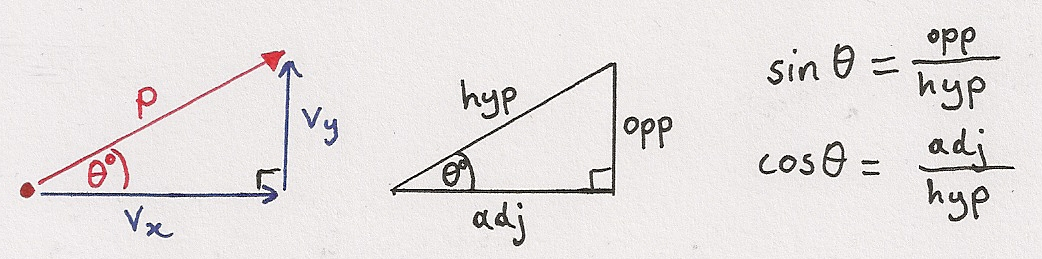 p
θ°
Vy
Vx
hyp
θ°
opp
adj
sin θ = opp/hyp
cos θ = adj/hyp